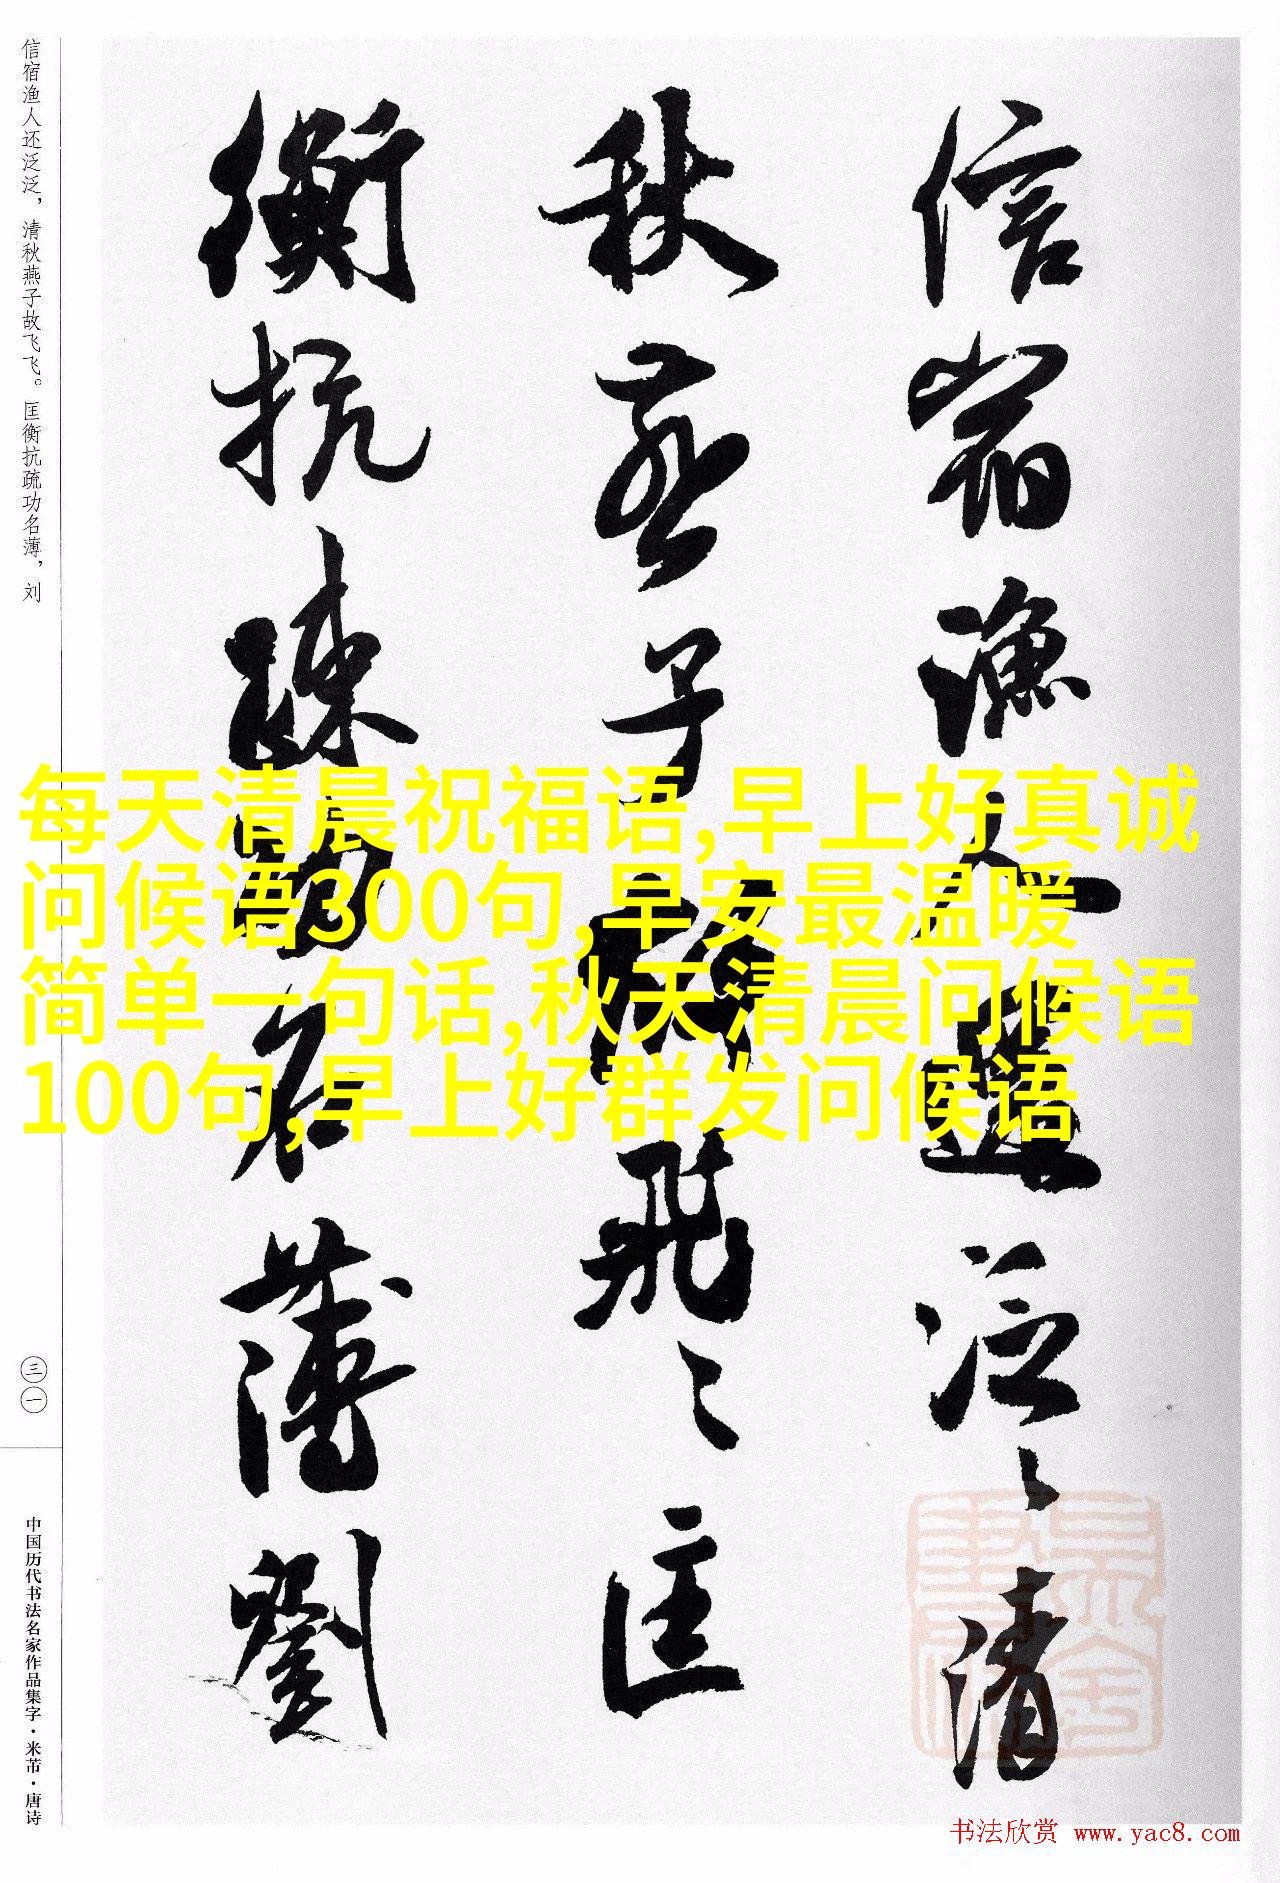 信宿漁人還泛々清
秋燕子故飛々匡
衡抗疏功名薄劉
信宿渔人还泛泛，清秋燕子故飞飞。匡衡抗疏功名薄，刘
三一
中国历代书法名家作品集字·米芾·唐诗
每天清晨祝福语,早上好真诚
问候语300句,早安最温暖
简单一句话,秋天清晨问候语
100句,早上好群发问候语
书法欣赏 www.yac8.com